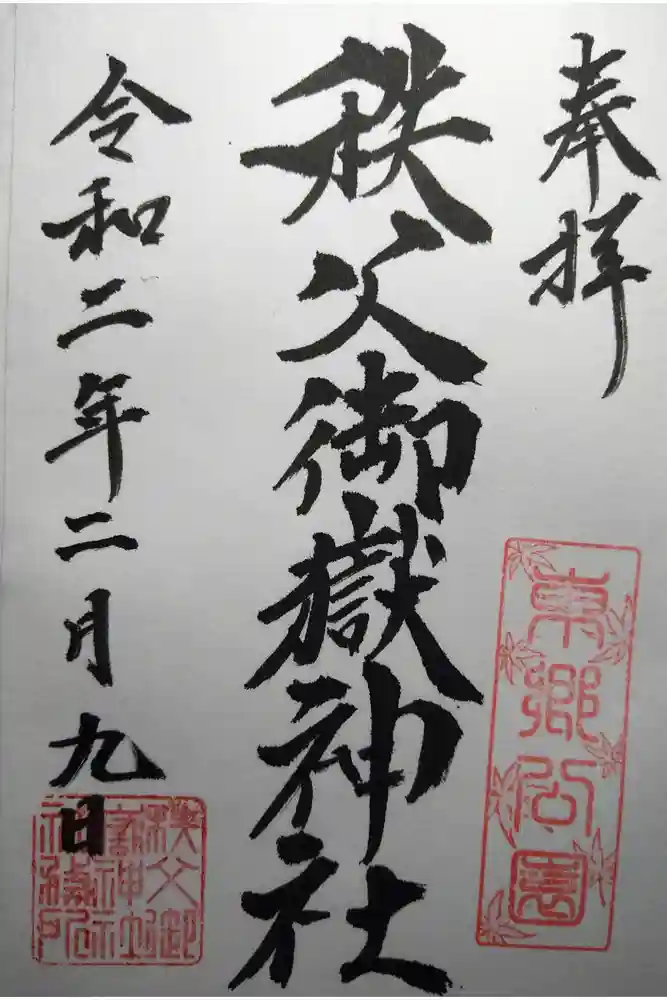 奉拝
東郷公園
秩父御嶽神社
令和二年二月九日
秩父御嶽神社社務所